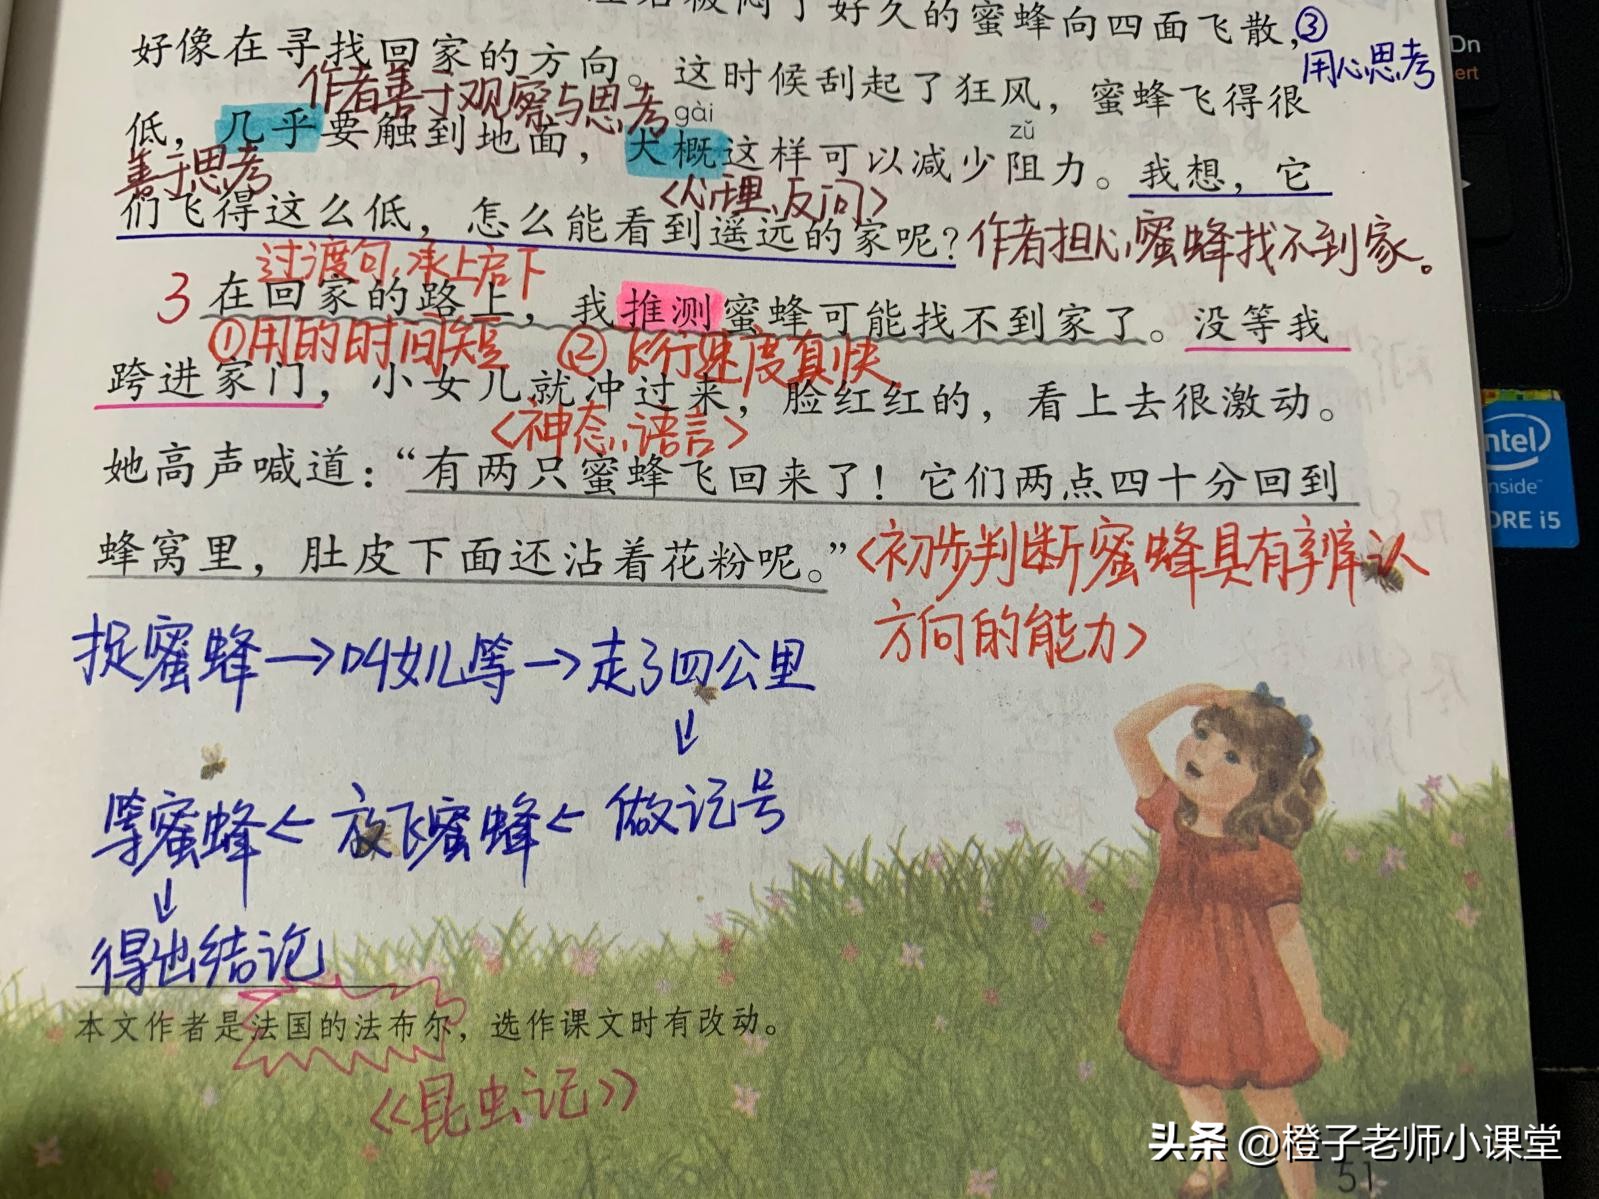 好久的蜜蜂向四面飞散，③
用心思考
好像在寻找回家的方向。这时候刮起了狂风，蜜蜂飞得很
作者善于观察与思考
gài
zǔ
低，几乎要触到地面，大概这样可以减少阻力。我想，它
善于思考
<心理、反问>
们飞得这么低，怎么能看到遥远的家呢？作者担心蜜蜂找不到家。
过渡句，承上启下
3 在回家的路上，我推测蜜蜂可能找不到家了。没等我
①用的时间短 ②飞行速度真快
跨进家门，小女儿就冲过来，脸红红的，看上去很激动。
<神态、语言>
她高声喊道：“有两只蜜蜂飞回来了！它们两点四十分回到
蜂窝里，肚皮下面还沾着花粉呢。”<初步判断蜜蜂具有辨认
方向的能力>
捉蜜蜂→叫女儿等→走了四公里
↓
等蜜蜂←放飞蜜蜂←做记号
↓
得出结论
本文作者是法国的法布尔，选作课文时有改动。
《昆虫记》
头条 @橙子老师小课堂
51
intel
inside
CORE i5